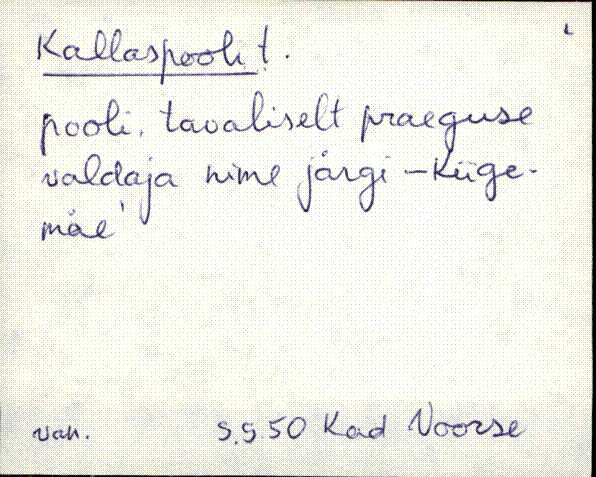 Kallaspooli t.
pooli, tavaliselt praeguse
valdaja nime järgi – Kiige-
mäe'
van. S.S.50 Kad Voorse